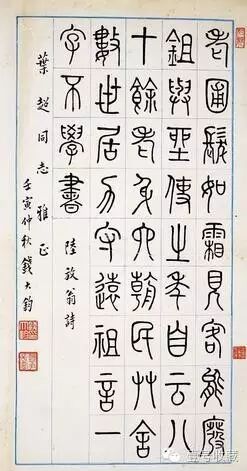 老圃鬢如霜見客能廢
鉏與坐使之年自云八
十餘老朝民艸舍
數世居力守遠祖言一
字不學書 陸放翁詩
葉超同志雅正
壬寅仲秋錢大鈞
壹号收藏